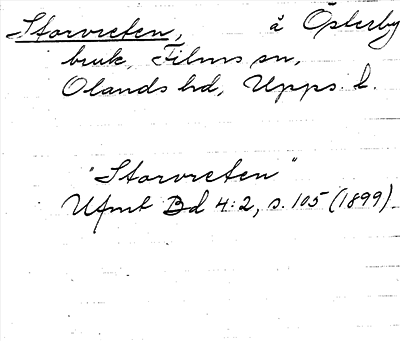 Storvreten, å Österby
bruk, Films sn,
Olands hd, Upps. l.
"Storvreten"
Ufmt Bd 4:2, s. 105 (1899).